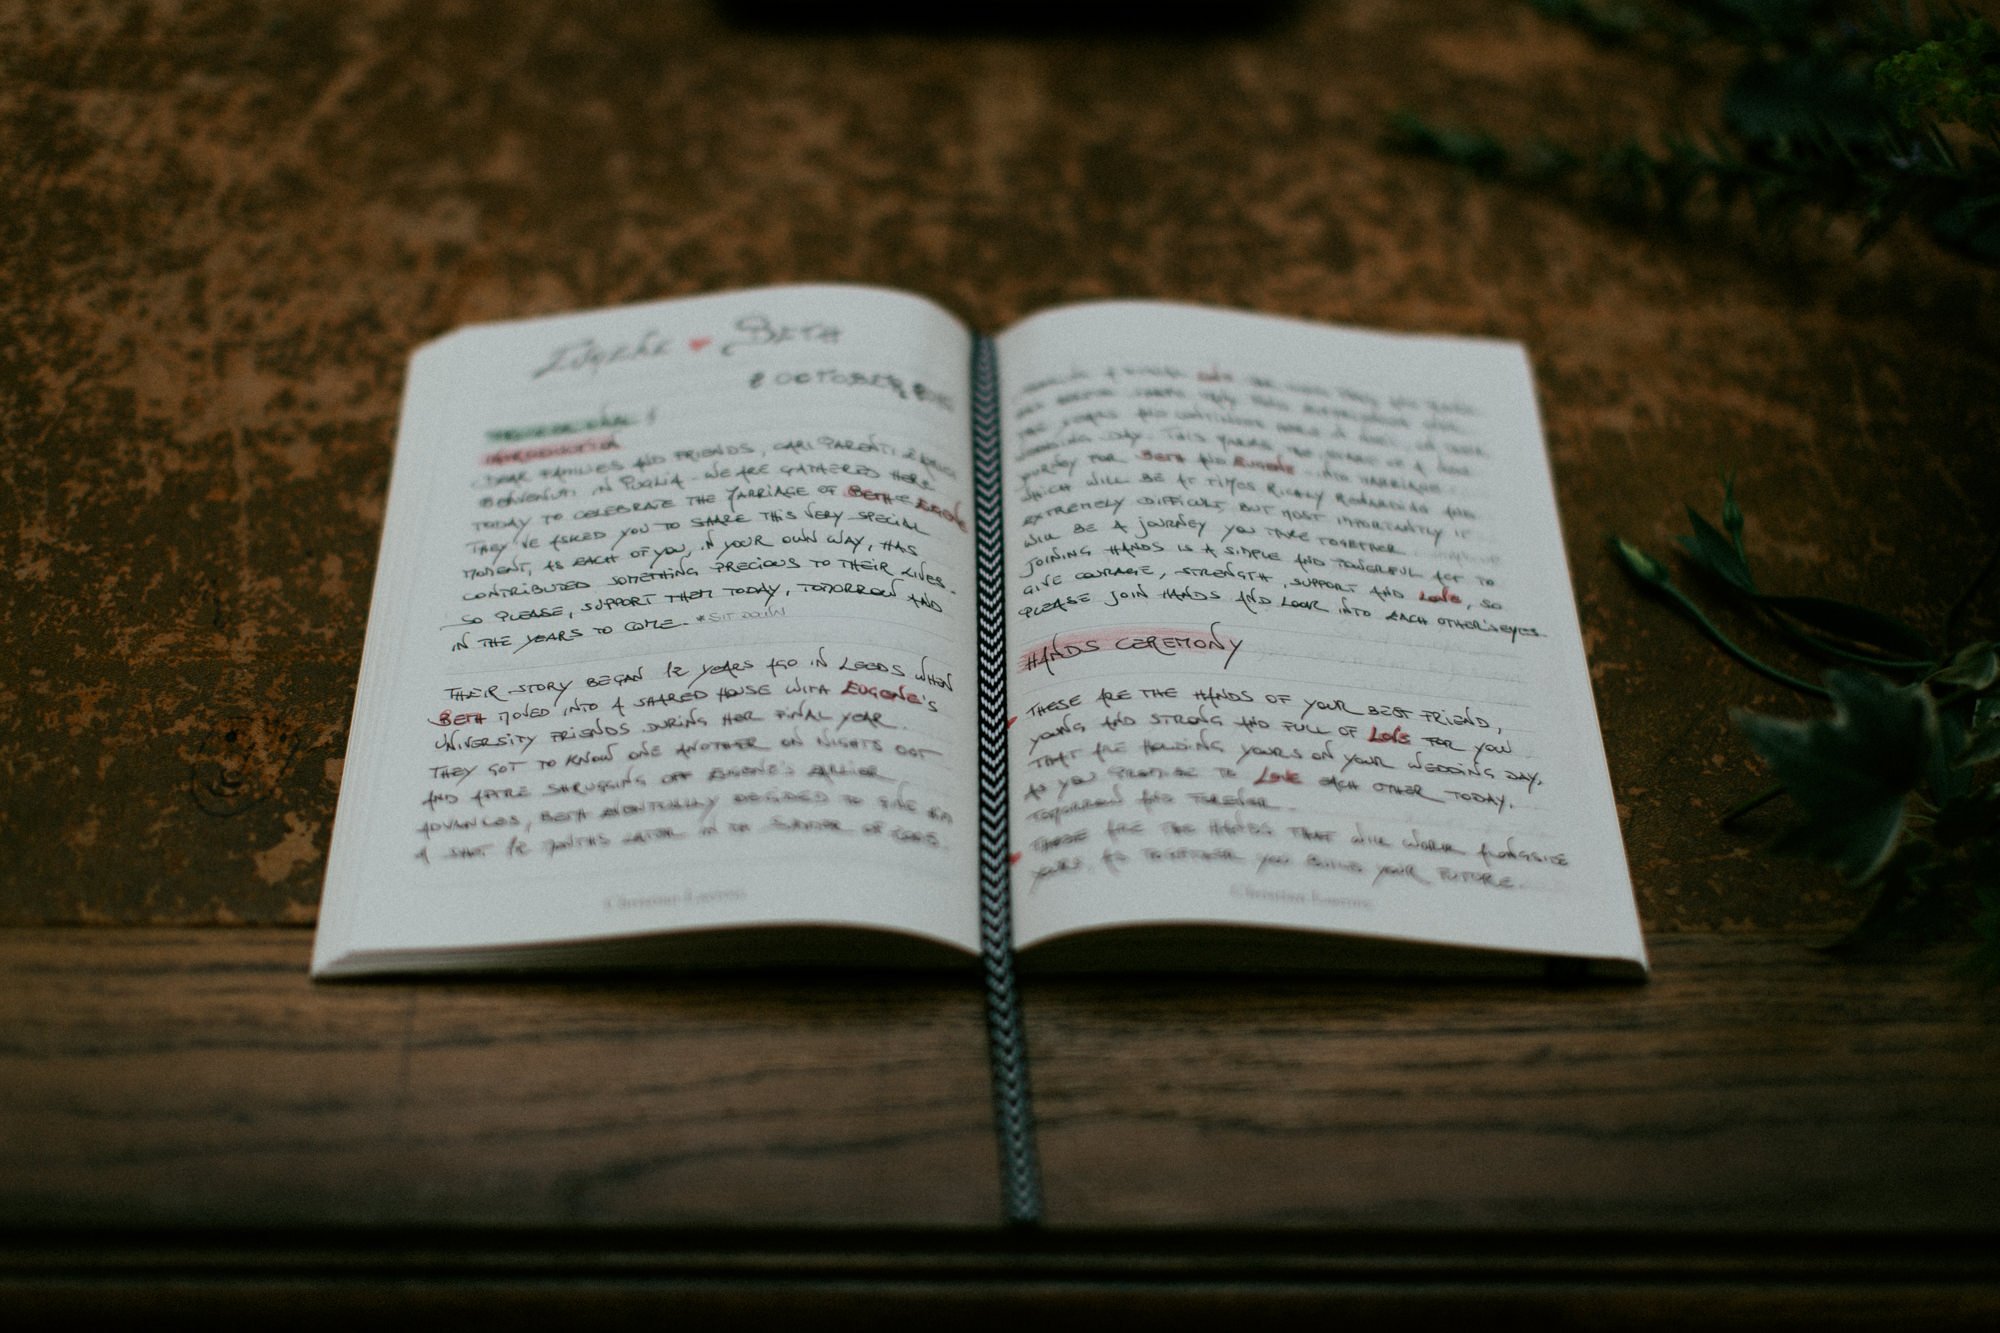 Eugene ♥ Beth
8 OCTOBER
INTRODUCTION
DEAR FAMILIES AND FRIENDS, CARI PARENTI E AMICI
BENVENUTI IN PUGLIA - WE ARE GATHERED HERE
TODAY TO CELEBRATE THE MARRIAGE OF BETH E EUGENE
THEY'VE ASKED YOU TO SHARE THIS VERY SPECIAL
MOMENT, AS EACH OF YOU, IN YOUR OWN WAY, HAS
CONTRIBUTED SOMETHING PRECIOUS TO THEIR LIVES.
SO PLEASE, SUPPORT THEM TODAY, TOMORROW AND
IN THE YEARS TO COME. *SIT DOWN
THEIR STORY BEGAN 12 YEARS AGO IN LEEDS WHEN
BETH MOVED INTO A SHARED HOUSE WITH EUGENE'S
UNIVERSITY FRIENDS DURING HER FINAL YEAR.
THEY GOT TO KNOW ONE ANOTHER ON NIGHTS OUT
AND AFTER SHRUGGING OFF EUGENE'S EARLIER
ADVANCES, BETH EVENTUALLY DECIDED TO GIVE HIM
A SHOT 12 MONTHS LATER IN THE SUMMER OF
WEDDING DAY. THIS MARKS THE START OF A NEW
JOURNEY FOR BETH AND EUGENE INTO MARRIAGE
WHICH WILL BE AT TIMES RICHLY REWARDING AND
EXTREMELY DIFFICULT BUT MOST IMPORTANTLY IT
WILL BE A JOURNEY YOU TAKE TOGETHER.
JOINING HANDS IS A SIMPLE AND POWERFUL ACT TO
GIVE COURAGE, STRENGTH, SUPPORT AND LOVE, SO
PLEASE JOIN HANDS AND LOOK INTO EACH OTHER'S EYES.
HANDS CEREMONY
THESE ARE THE HANDS OF YOUR BEST FRIEND,
YOUNG AND STRONG AND FULL OF LOVE FOR YOU
THAT ARE HOLDING YOURS ON YOUR WEDDING DAY,
AS YOU PROMISE TO LOVE EACH OTHER TODAY,
TOMORROW AND FOREVER.
THESE ARE THE HANDS THAT WILL WORK ALONGSIDE
YOURS, AS TOGETHER YOU BUILD YOUR FUTURE.